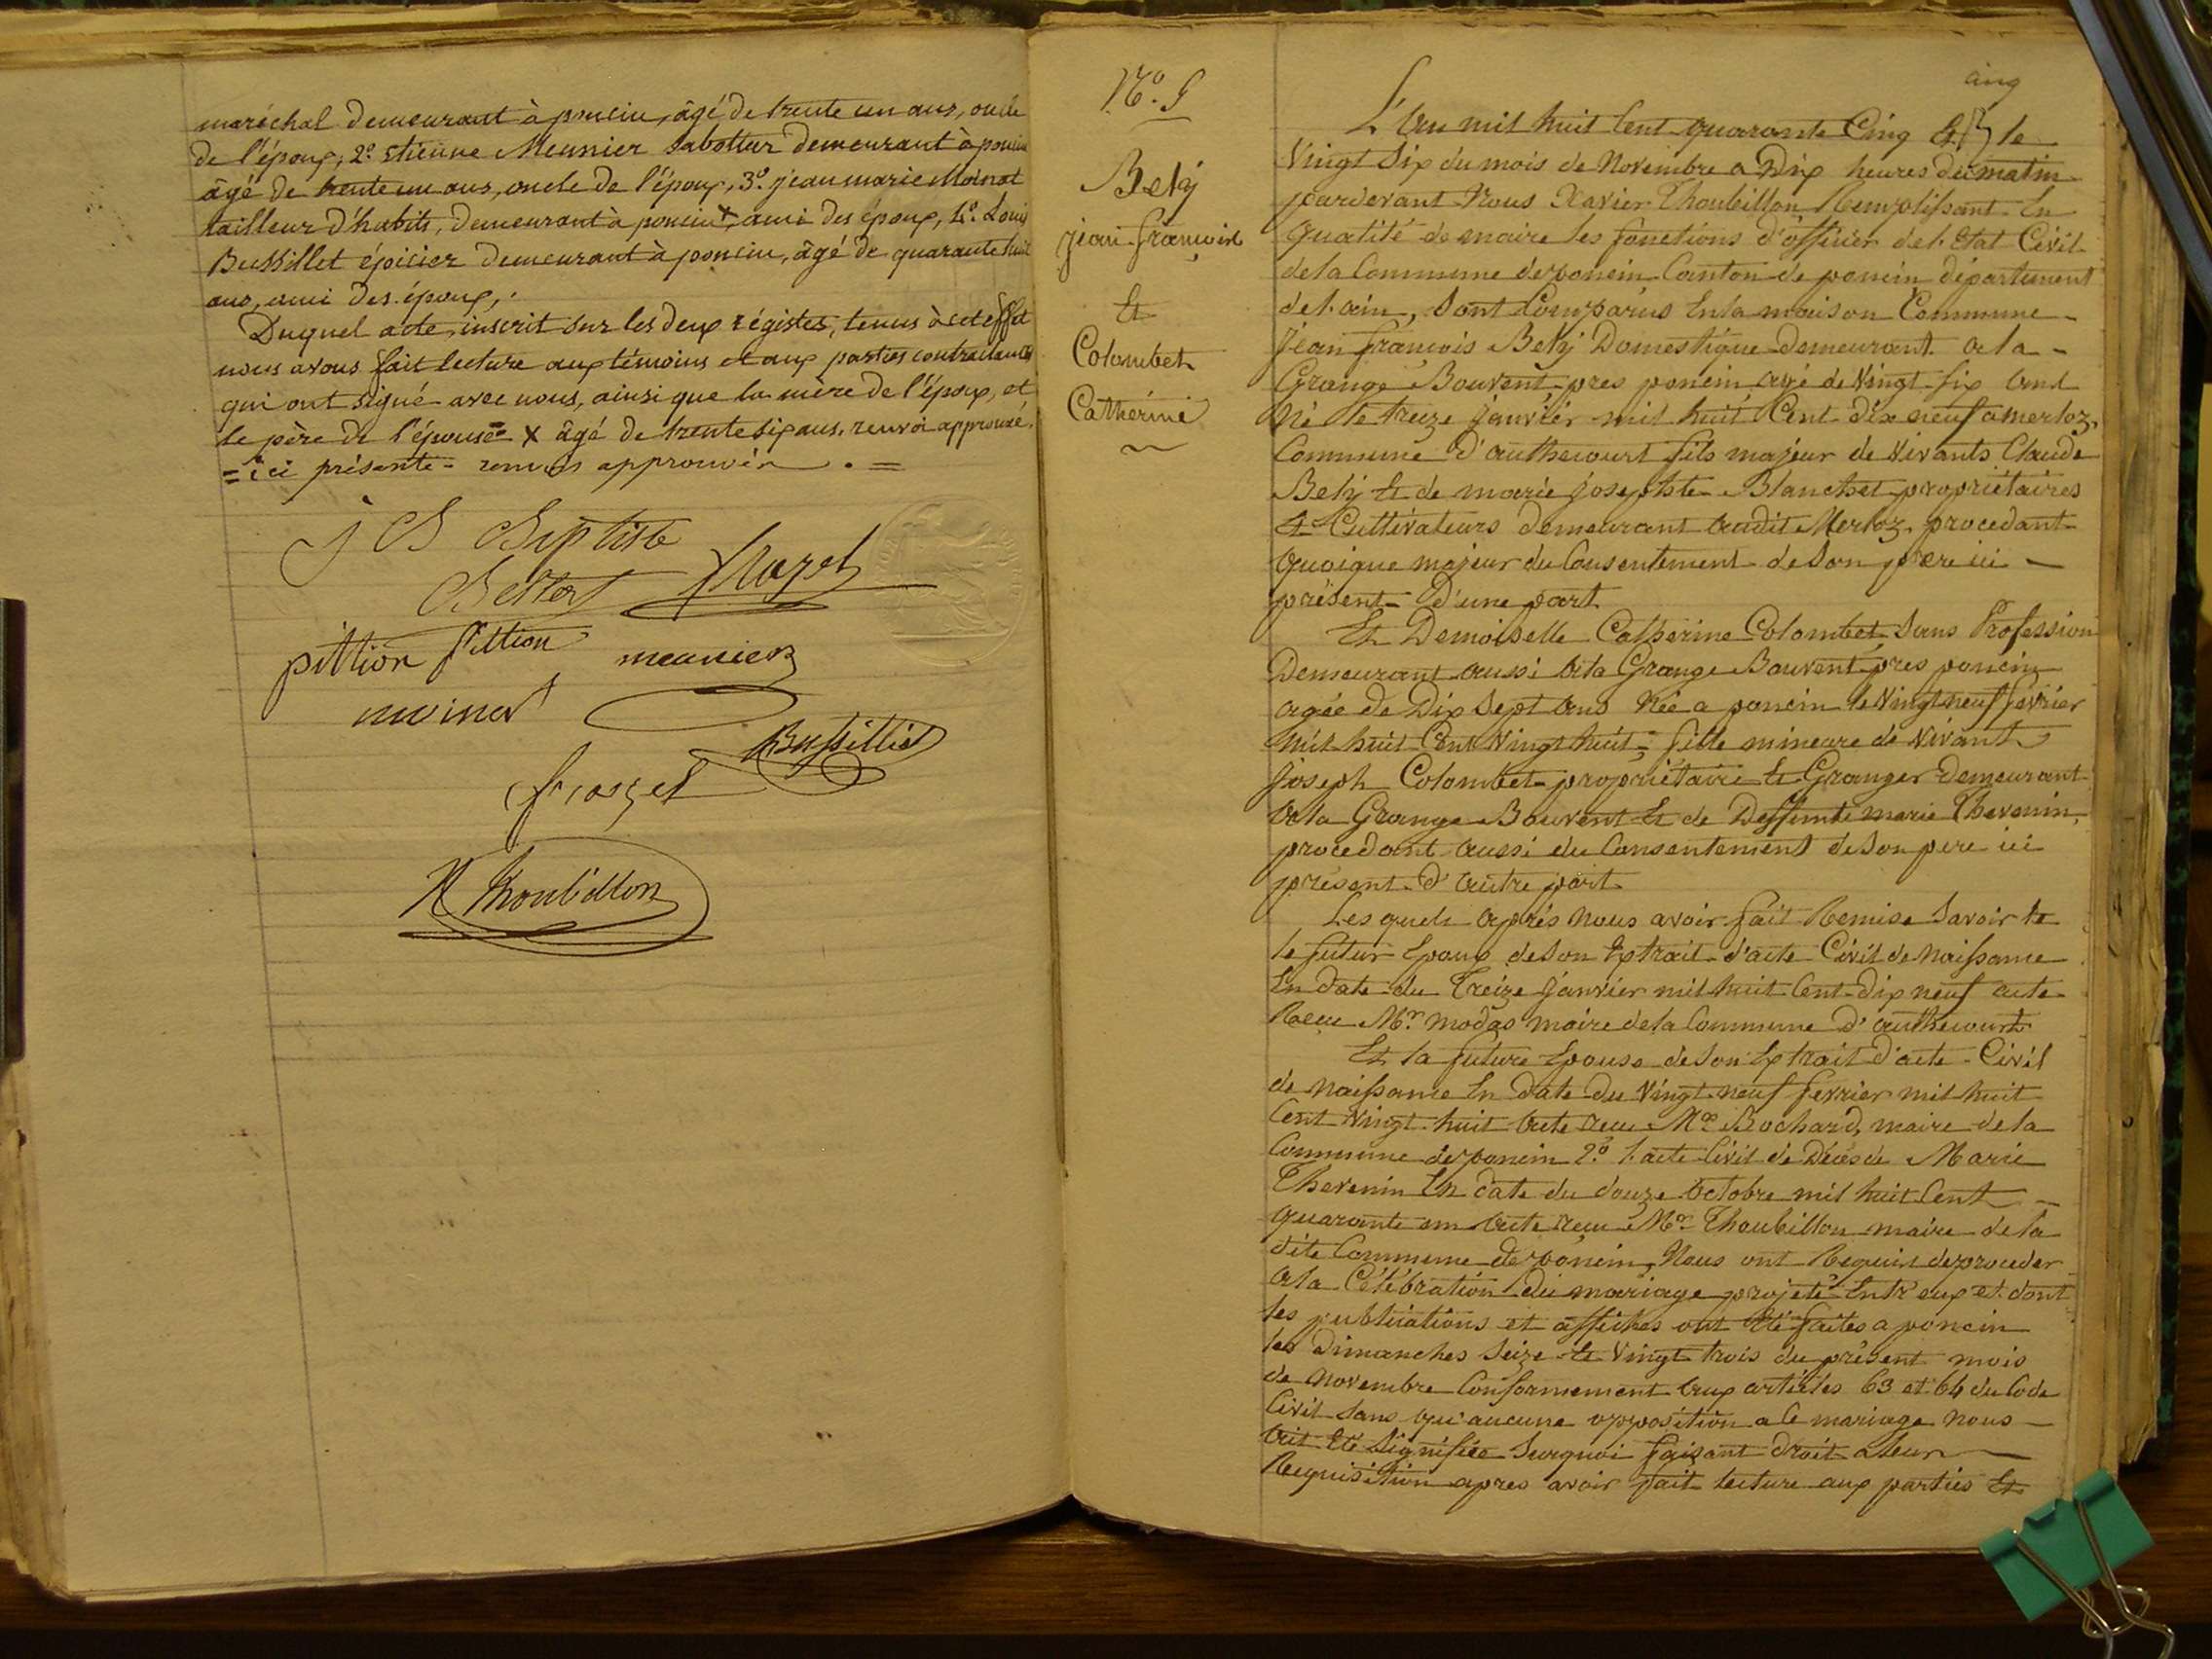 maréchal demeurant à poncin, âgé de trente un ans, oncle
de l'époux, 2º. etienne Meunier sabottier demeurant à poncin
âgé de trente un ans, oncle de l'époux, 3º. jean marie Moinat
tailleur d'habits, demeurant à poncin x, ami des époux, 4º. Louis
Bussillet épicier demeurant à poncin, âgé de quarante huit
ans, ami des époux,.
Duquel acte, inscrit sur les deux régistes, tenus à cet effet
nous avons fait lecture aux témoins et aux parties contractantes
qui ont signé avec nous, ainsi que la mère de l'époux, et
le père de l'épouse = x âgé de trente six ans. renvoi approuvé.
= ici présente - renvois approuvés . =
j B Biptiste
pittion pittion meunier
moinat
Bussillet
X Thoubillon
Nº. 9
Bely
jean françois
Et
Colombet
Catherine
cinq
L'an mil huit Cent quarante Cinq Et le
Vingt Six du mois de Novembre a Dix heures du matin
pardevant Nous Xavier Thoubillon Remplissant En
qualité de maire les fonctions d'officier de l. Etat Civil
de la Commune de poncin Canton de poncin département
de l. ain, Sont Comparus En la maison Commune
Jean francois Bely Domestique demeurant a la
Grange Bouvent pres poncin agé de Vingt Six ans
Né le treize janvier mil huit Cent dix neuf a merloz,
Commune d'authecourt fils majeur de Vivants Claude
Bely Et de marie josephte Blanchet propriétaires
Et Cultivateurs demeurant audit Merloz, procedant
quoique majeur du Consentement de Son père ici
présent D'une part
Et Demoiselle Catherine Colombet Sans Profession
Demeurant aussi a la Grange Bouvent pres poncin
agée de Dix Sept ans Née a poncin le Vingt neuf février
mil huit Cent Vingt huit, fille mineure de Vivant
Joseph Colombet propriétaire Et Granger demeurant
a la Grange Bouvent Et de Deffunte marie Thevenin,
procedant aussi du Consentement de Son pere ici
présent D'autre part
Les quels après nous avoir fait Remise Savoir le
le futur Epoux de Son Extrait d'acte Civil de Naissance
En date du Treize janvier mil huit Cent dix neuf acte
Recu Mr. modas maire de la Commune d'authecourt
Et la future Epouse de Son Extrait D'acte Civil
de Naissance En date du Vingt neuf fevrier mil huit
Cent Vingt huit acte recu Mr. Bochard, maire de la
Commune de poncin 2º. l. acte Civil de Décès de Marie
Thevenin En date du douze Octobre mil huit Cent
quarante un acte recu Mr. Thoubillon maire de la
dite Commune de poncin, Nous ont Requis de proceder
a la Célébration du mariage projeté Entr'eux et dont
les publications et affiches ont été faites a poncin
les Dimanches Seize Et Vingt trois du présent mois
de Novembre Conformement aux articles 63 et 64 du Code
Civil Sans qu'aucune opposition a Ce mariage nous
ait été Signifiée Surquoi faisant droit a leur
Requisition apres avoir fait lecture aux parties Et